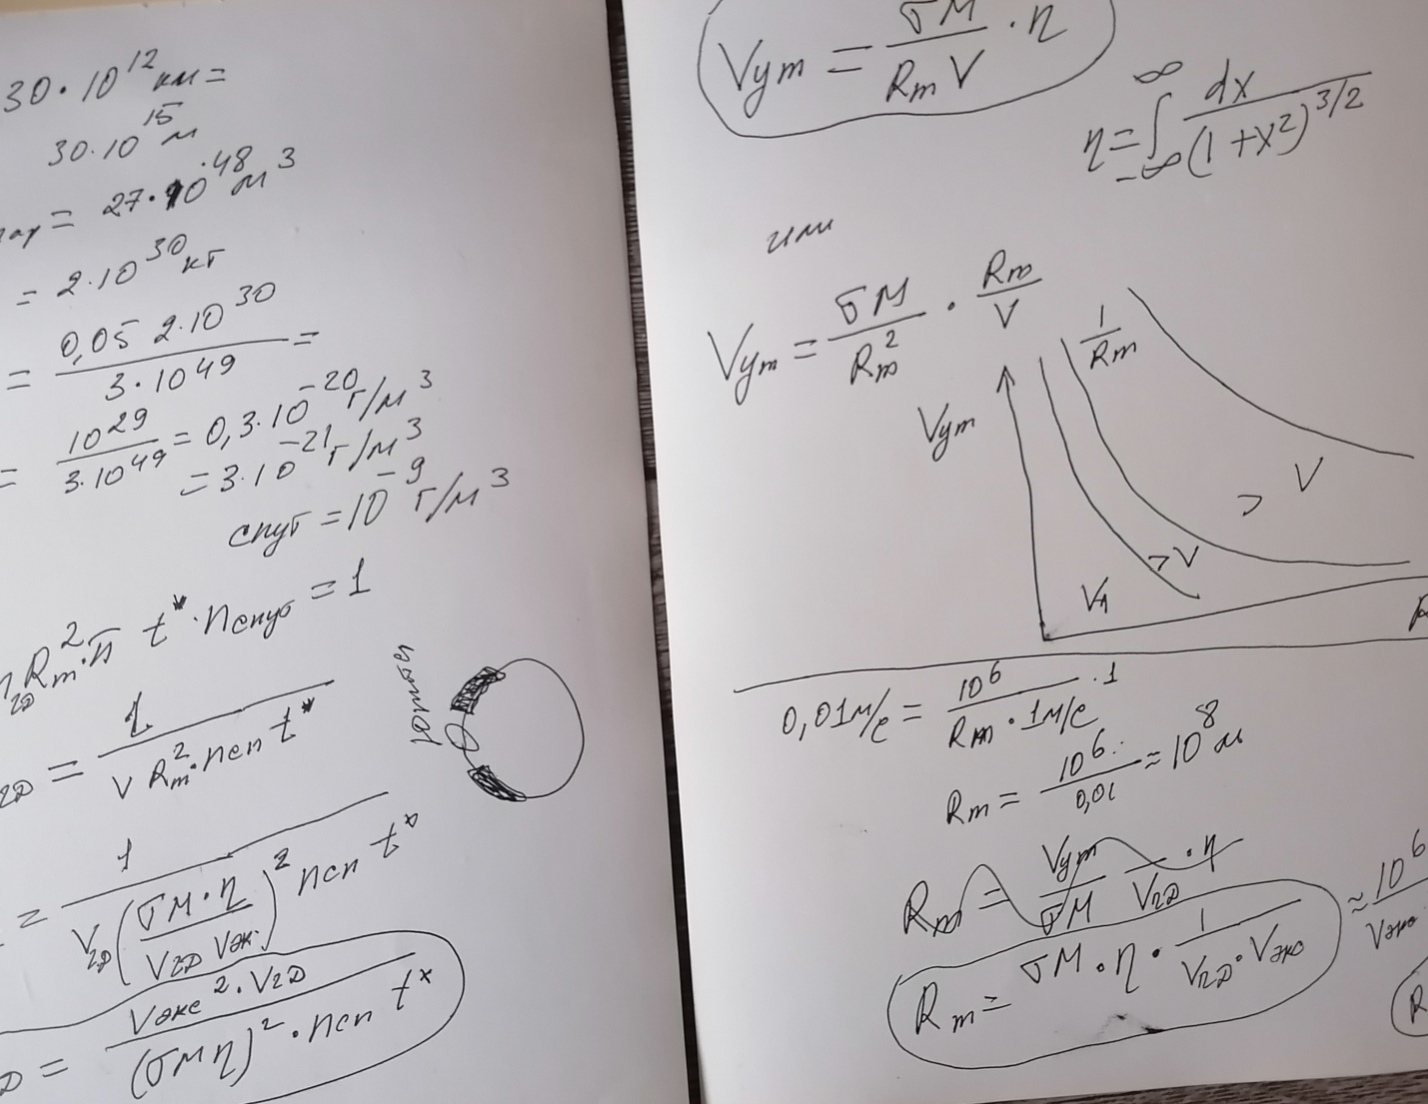 30·10^12 км =
30·10^15 м
= 27·10^48 м^3
= 2·10^30 кг
= (0,05 2·10^30)/(3·10^49) =
= 10^29/(3·10^49) = 0,3·10^-20 г/м^3
= 3·10^-21 г/м^3
спут = 10^-9 г/м^3
R_m^2·π t*·n_спут = 1
= 1/(V R_m^2·n_сп t*)
потом
= 1/(V_гд (σM·η/(V_гд V_эк.))^2 n_сп t*)
= (V_экс^2·V_гд)/((σMη)^2·n_сп t*)
V_ут = σM/(R_m V)·η
η = ∫_{-∞}^{∞} dx/(1+x^2)^{3/2}
или
V_ут = σM/R_m^2 · R_m/V
1/R_m
V_ут
> V
> V
V_1
0,01 м/с = 10^6/(R_m·1м/с)·1
R_m = 10^6/0,01 ≈ 10^8 м
R_m = V_ут/σM 1/V_гд·η
R_m = σM·η·1/(V_гд·V_экс)
≈ 10^6/V_экс
R